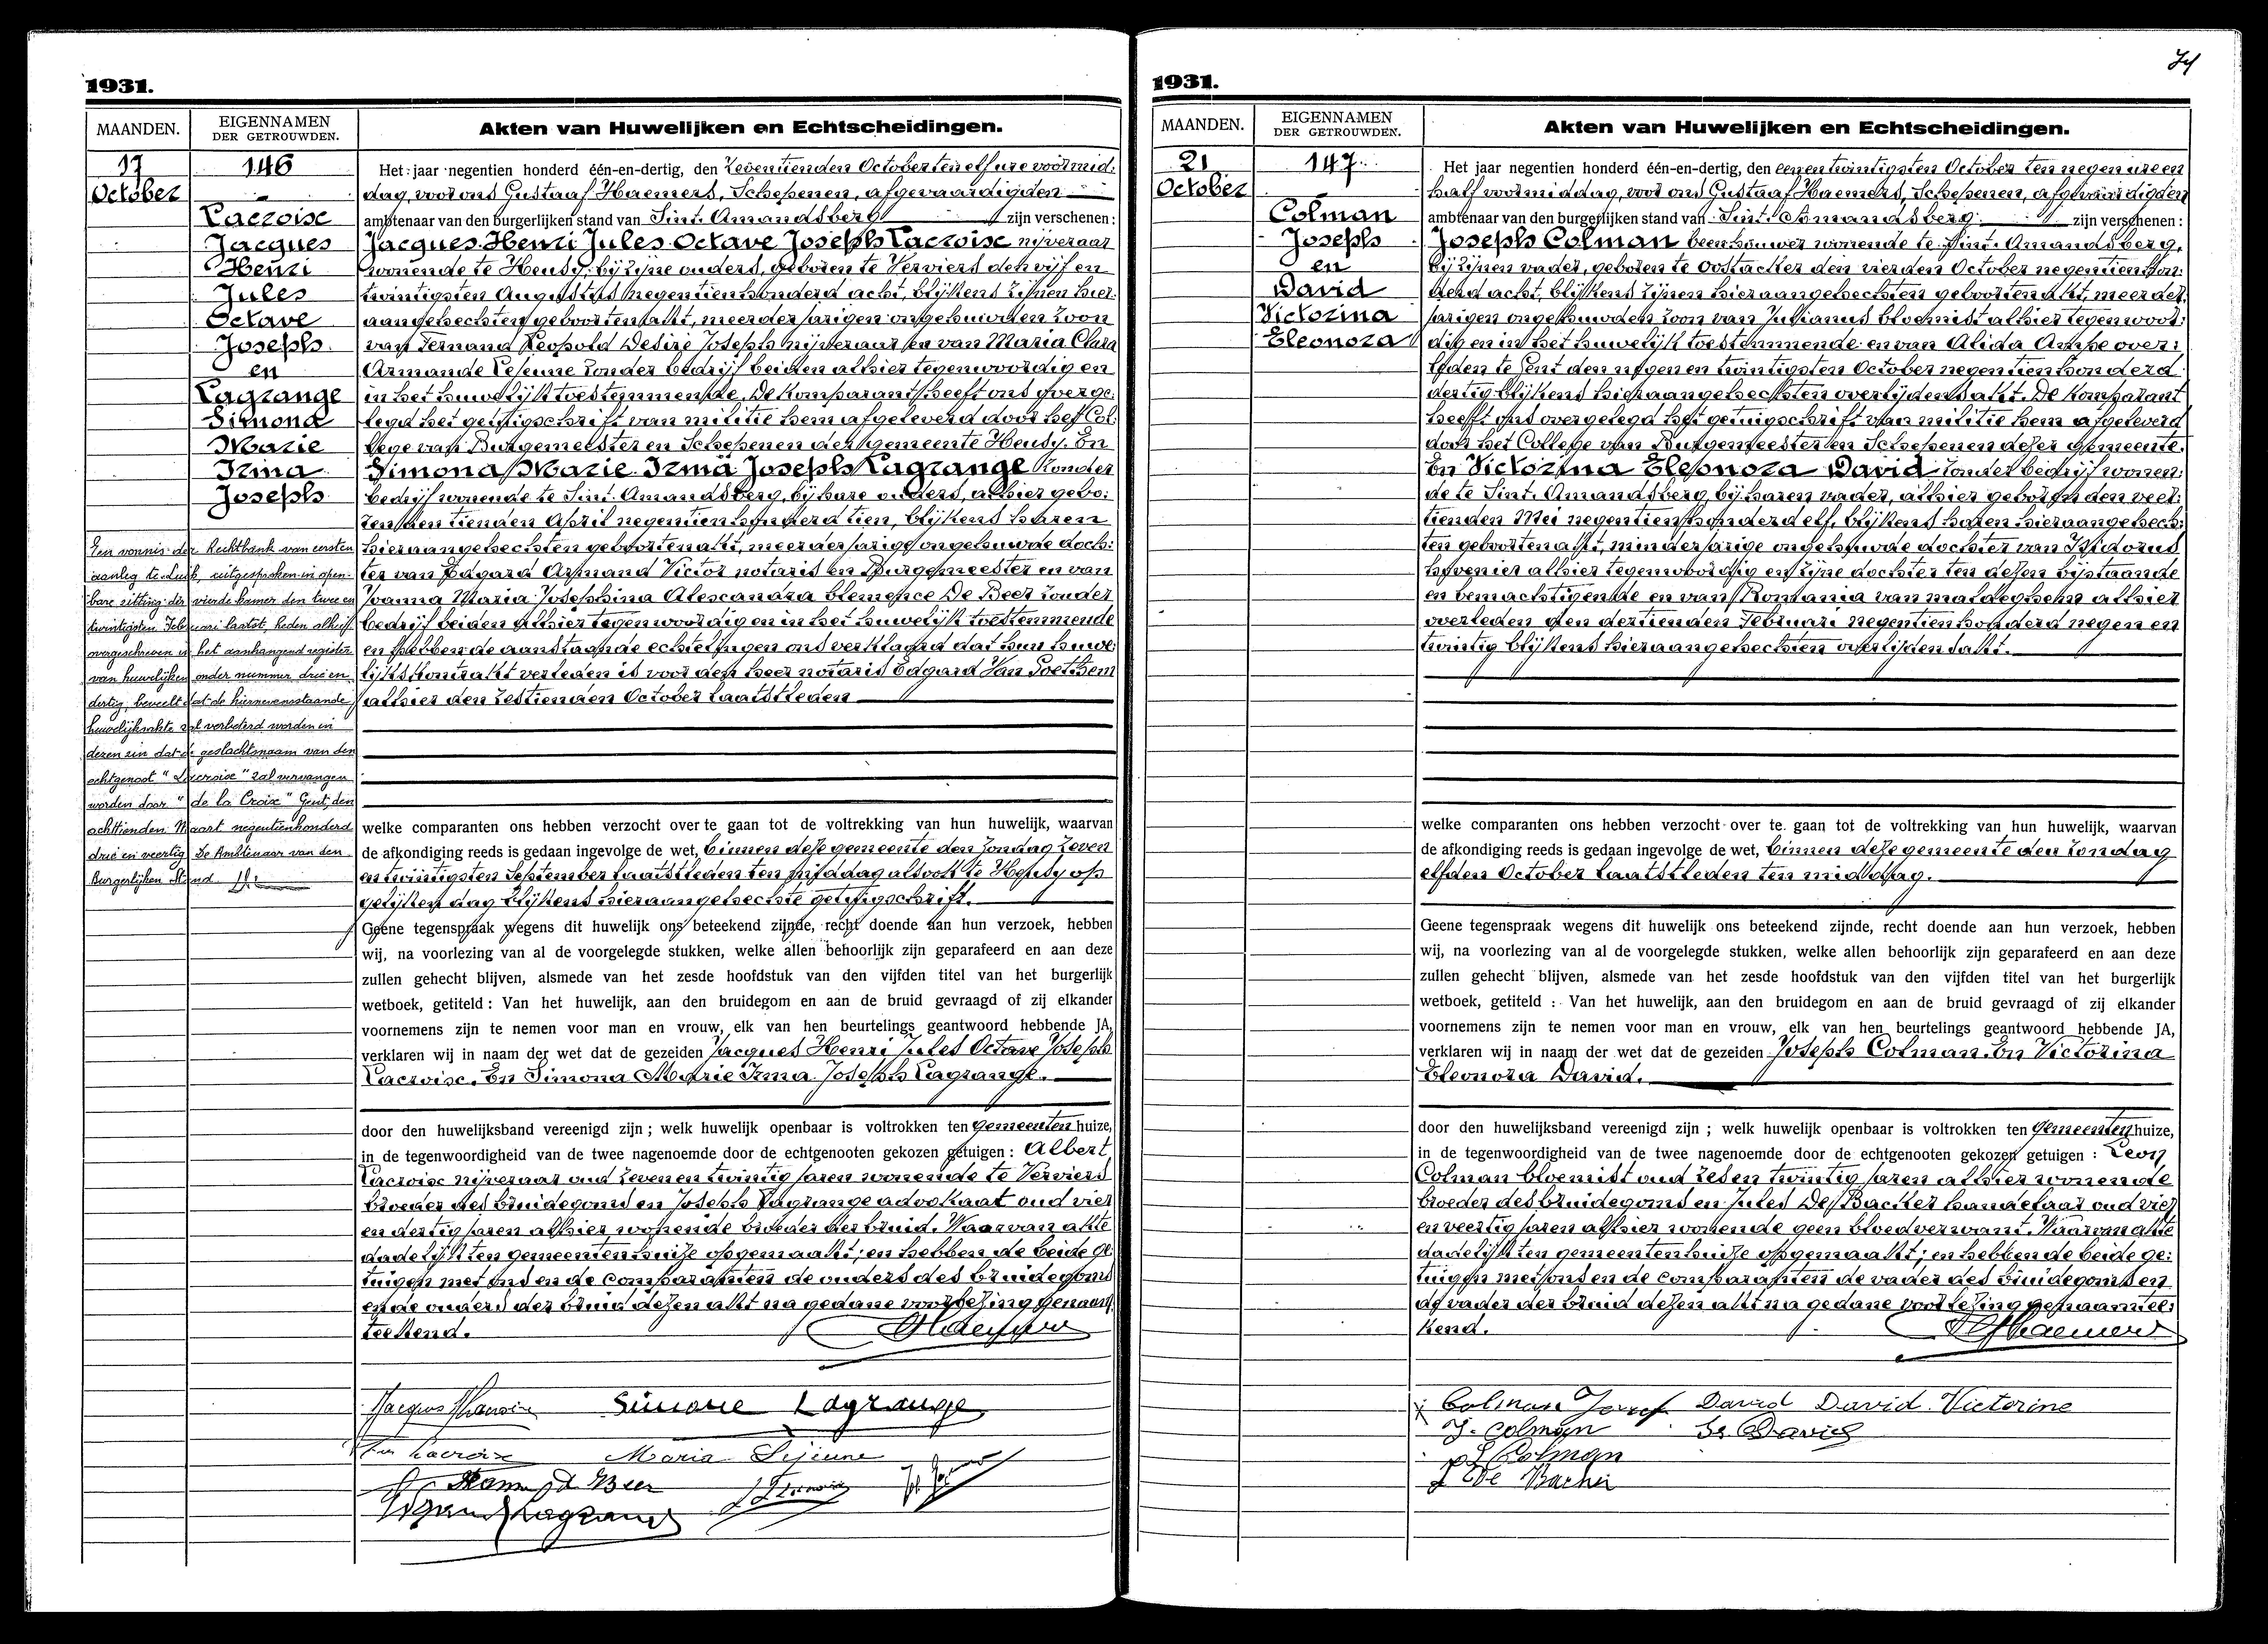 1931.
MAANDEN.
EIGENNAMEN
DER GETROUWDEN.
Akten van Huwelijken en Echtscheidingen.
17
October
146
Lacroise
Jacques
Henri
Jules
Octave
Joseph
en
Lagrange
Simona
Marie
Irma
Joseph
Een vonnis der Rechtbank van eersten
aanleg te Luik, uitgesproken in open-
bare zitting der vierde kamer den twee en
twintigsten Februari laatst, heden alhier
overgeschreven in het aanhangend register
van huwelijken onder nummer drie en
dertig, beveelt dat de hiernevensstaande
huwelijksakte zal verbeterd worden in
dezen zin dat de geslachtnaam van den
echtgenoot "Lacroise" zal vervangen
worden door "de la Croix" Gent, den
achttienden Maart negentienhonderd
drie en veertig De Ambtenaar van den
Burgerlijken Stand
Het jaar negentien honderd één-en-dertig, den zeventienden October ten elf ure voormid:
dag, voor ons Gustaaf Haemers, Schepenen, afgevaardigden
ambtenaar van den burgerlijken stand van Sint. Amandsberg zijn verschenen:
Jacques Henri Jules Octave Joseph Lacroise nijveraar
wonende te Heusy, bij zijne ouders, geboren te Verviers den vijf en
twintigsten Augustus negentienhonderd acht, blijkens zijnen hier:
aangehechten geboortenakt, meerderjarigen ongehuwden zoon
van Fernand Leopold Desire Joseph nijveraar en van Maria Clara
Armande Lejeune zonder bedrijf beiden alhier tegenwoordig en
in het huwelijk toestemmende. De komparant heeft ons overge:
legd het getuigschrift van militie hem afgeleverd door het Col:
lege van Burgemeester en Schepenen der gemeente Heusy. En
Simona Marie Irma Joseph Lagrange zonder
bedrijf wonende te Sint. Amandsberg, bij hare ouders, alhier gebo:
ren den tienden April negentienhonderd tien, blijkens haren
hieraangehechten geboortenakt, meerderjarige ongehuwde doch:
ter van Edgard Armand Victor notaris en Burgemeester en van
Joanna Maria Josephina Alexandra Clemence De Beer zonder
bedrijf beiden alhier tegenwoordig en in het huwelijk toestemmende
en hebben de aanstaande echtelingen ons verklaard dat hun huwe:
lijkskontrakt verleden is voor den heer notaris Edgard Van Soethem
alhier den zestienden October laatstleden
welke comparanten ons hebben verzocht over te gaan tot de voltrekking van hun huwelijk, waarvan
de afkondiging reeds is gedaan ingevolge de wet, binnen deze gemeente den zondag zeven
en twintigsten September laatstleden ten middag alsook te Heusy op
gelijken dag blijkens hieraangehechte getuigschrift.
Geene tegenspraak wegens dit huwelijk ons beteekend zijnde, recht doende aan hun verzoek, hebben
wij, na voorlezing van al de voorgelegde stukken, welke allen behoorlijk zijn geparafeerd en aan deze
zullen gehecht blijven, alsmede van het zesde hoofdstuk van den vijfden titel van het burgerlijk
wetboek, getiteld : Van het huwelijk, aan den bruidegom en aan de bruid gevraagd of zij elkander
voornemens zijn te nemen voor man en vrouw, elk van hen beurtelings geantwoord hebbende JA,
verklaren wij in naam der wet dat de gezeiden Jacques Henri Jules Octave Joseph
Lacroise. En Simona Marie Irma Joseph Lagrange.
door den huwelijksband vereenigd zijn ; welk huwelijk openbaar is voltrokken ten Gemeentenhuize,
in de tegenwoordigheid van de twee nagenoemde door de echtgenooten gekozen getuigen : Albert
Lacroise nijveraar oud zeven en twintig jaren wonende te Verviers
broeder des bruidegoms en Joseph Lagrange advokaat oud vier
en dertig jaren alhier wonende broeder der bruid. Waarvan akte
dadelijk ten gemeentenhuize opgemaakt; en hebben de beide ge:
tuigen met ons en de comparanten de ouders des bruidegoms
en de ouders der bruid dezen akt na gedane voorlezing genaam:
teekend.
Simone Lagrange
Maria Lejeune
1931.
74
MAANDEN.
EIGENNAMEN
DER GETROUWDEN.
Akten van Huwelijken en Echtscheidingen.
21
October
147
Colman
Joseph
en
David
Victorina
Eleonora
Het jaar negentien honderd één-en-dertig, den eenentwintigsten October ten negen ure en
half voormiddag, voor ons Gustaaf Haemers, Schepenen, afgevaardigden
ambtenaar van den burgerlijken stand van Sint. Amandsberg zijn verschenen :
Joseph Colman beenhouwer wonende te Sint. Amandsberg,
bij zijnen vader, geboren te Oostacker den vierden October negentienhon:
derd acht, blijkens zijnen hieraangehechten geboortenakt, meerder:
jarigen ongehuwden zoon van Julianus bloemist alhier tegenwoor:
dig en in het huwelijk toestemmende en van Alida Ampe over:
leden te Gent den negen en twintigsten October negentienhonderd
dertig blijkens hieraangehechten overlijdensakt. De komparant
heeft ons overgelegd het getuigschrift van militie hem afgeleverd
door het College van Burgemeester en Schepenen dezer gemeente.
En Victorina Eleonora David zonder bedrijf wonen:
de te Sint. Amandsberg bij haren vader, alhier geboren den veer:
tienden Mei negentienhonderd elf, blijkens haren hieraangehech:
ten geboortenakt, minderjarige ongehuwde dochter van Isidorus
hovenier alhier tegenwoordig en zijne dochter ten dezen bijstaande
en bemachtigende en van Romania van maldeghem alhier
overleden den dertienden Februari negentienhonderd negen en
twintig blijkens hieraangehechten overlijdensakt.
welke comparanten ons hebben verzocht over te gaan tot de voltrekking van hun huwelijk, waarvan
de afkondiging reeds is gedaan ingevolge de wet, binnen deze gemeente den zondag
elfden October laatstleden ten middag.
Geene tegenspraak wegens dit huwelijk ons beteekend zijnde, recht doende aan hun verzoek, hebben
wij, na voorlezing van al de voorgelegde stukken, welke allen behoorlijk zijn geparafeerd en aan deze
zullen gehecht blijven, alsmede van het zesde hoofdstuk van den vijfden titel van het burgerlijk
wetboek, getiteld : Van het huwelijk, aan den bruidegom en aan de bruid gevraagd of zij elkander
voornemens zijn te nemen voor man en vrouw, elk van hen beurtelings geantwoord hebbende JA,
verklaren wij in naam der wet dat de gezeiden Joseph Colman. En Victorina
Eleonora David.
door den huwelijksband vereenigd zijn ; welk huwelijk openbaar is voltrokken ten Gemeentenhuize,
in de tegenwoordigheid van de twee nagenoemde door de echtgenooten gekozen getuigen : Leon
Colman bloemist oud zes en twintig jaren alhier wonende
broeder des bruidegoms en Jules De Backer handelaar oud vier
en veertig jaren alhier wonende geen bloedverwant. Waarvan akte
dadelijk ten gemeentenhuize opgemaakt; en hebben de beide ge:
tuigen met ons en de comparanten de vader des bruidegoms en
de vader der bruid dezen akt na gedane voorlezing genaamtee:
kend.
Colman Jozef David David Victorine
J. Colman Is. David
L Colman
J De Backer